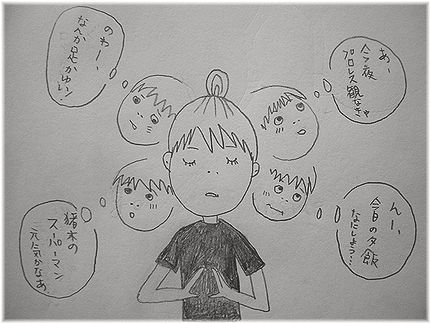 あー
今夜
プロレス観なきゃ
のわーー、
なんか足かゆい!
んー、
今日の夕飯
なにしよう…
猪木の
スーパーマン
元気かなあ